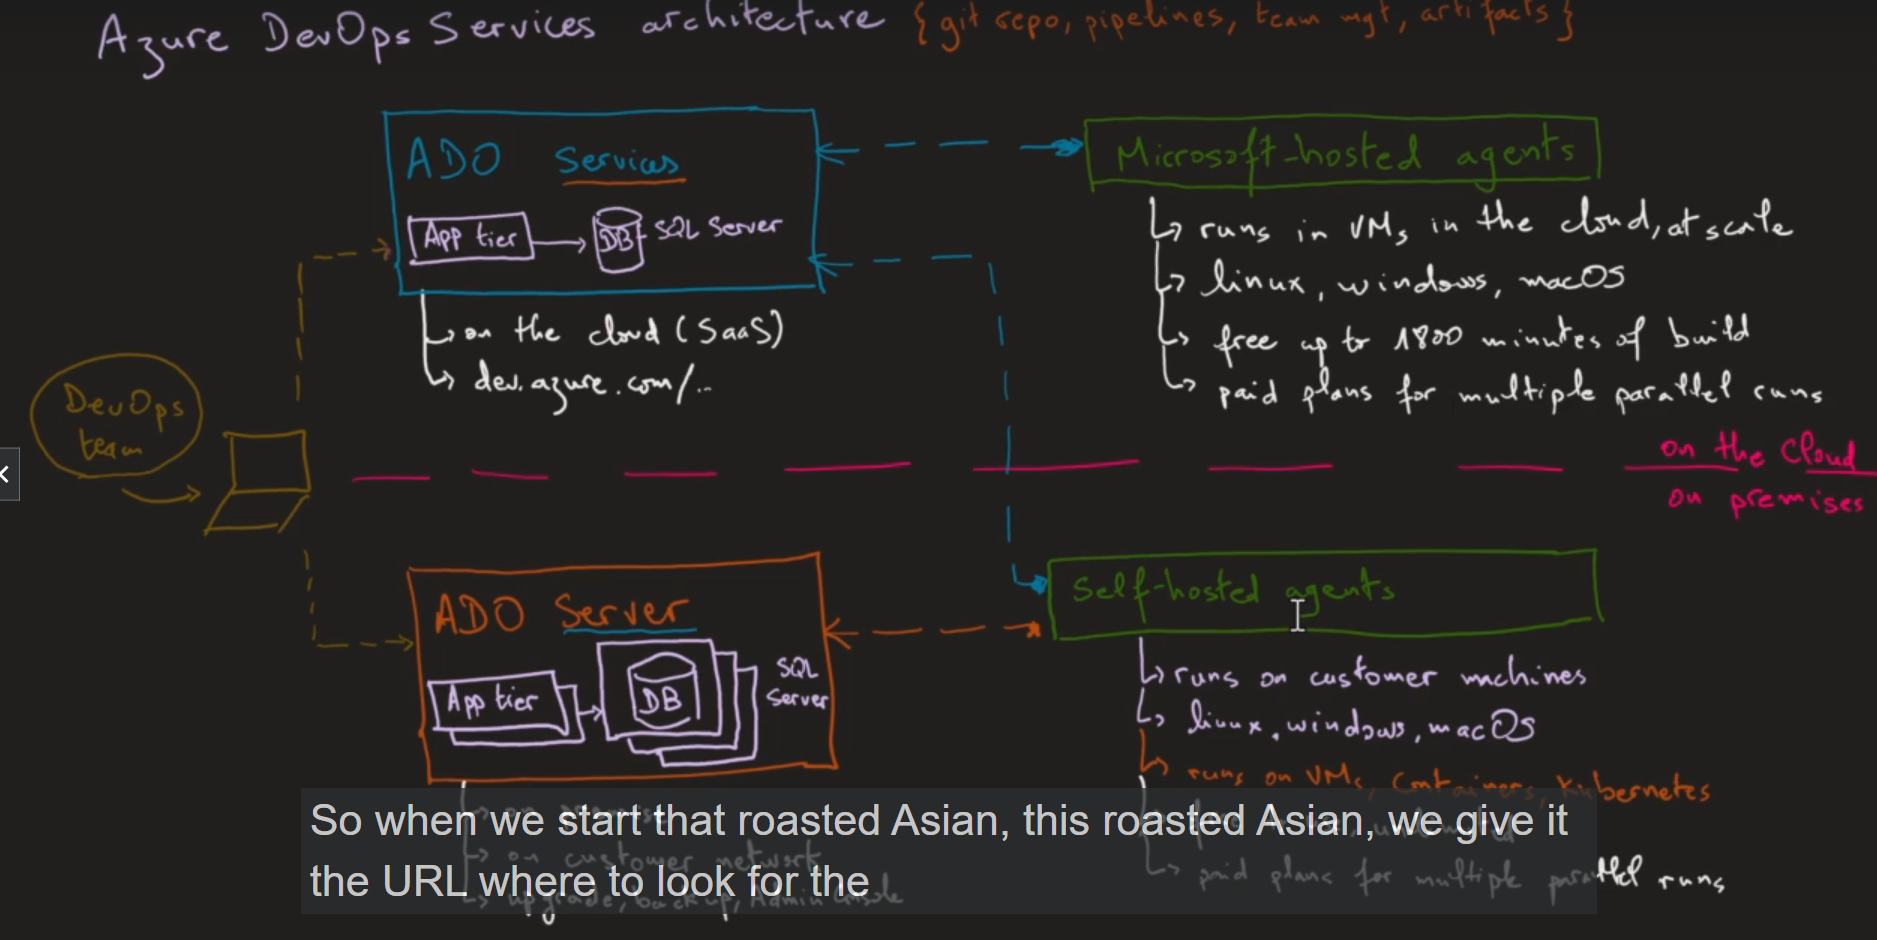 Azure DevOps Services architecture {git repo, pipelines, team mgt, artifacts}
ADO Services
App tier
DB
SQL Server
on the cloud (SaaS)
dev.azure.com/..
Microsoft-hosted agents
runs in VMs in the cloud, at scale
linux, windows, macOS
free up to 1800 minutes of build
paid plans for multiple parallel runs
DevOps
team
on the Cloud
on premises
ADO Server
App tier
DB
SQL
Server
Self-hosted agents
runs on customer machines
linux, windows, macOS
runs on VMs, Containers, Kubernetes
paid plans for multiple parallel runs
on premise
on customer network
upgrade, backup, Admin console
So when we start that roasted Asian, this roasted Asian, we give it
the URL where to look for the